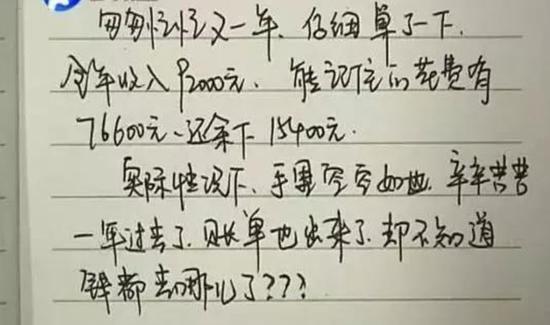 匆匆忙忙又一年、仔细算了一下、
全年收入92000元、能记住的花费有
76600元、还余下15400元.
实际情况下、手里空空如也、辛辛苦苦
一年过去了、账单也出来了、却不知道
钱都去哪儿了???